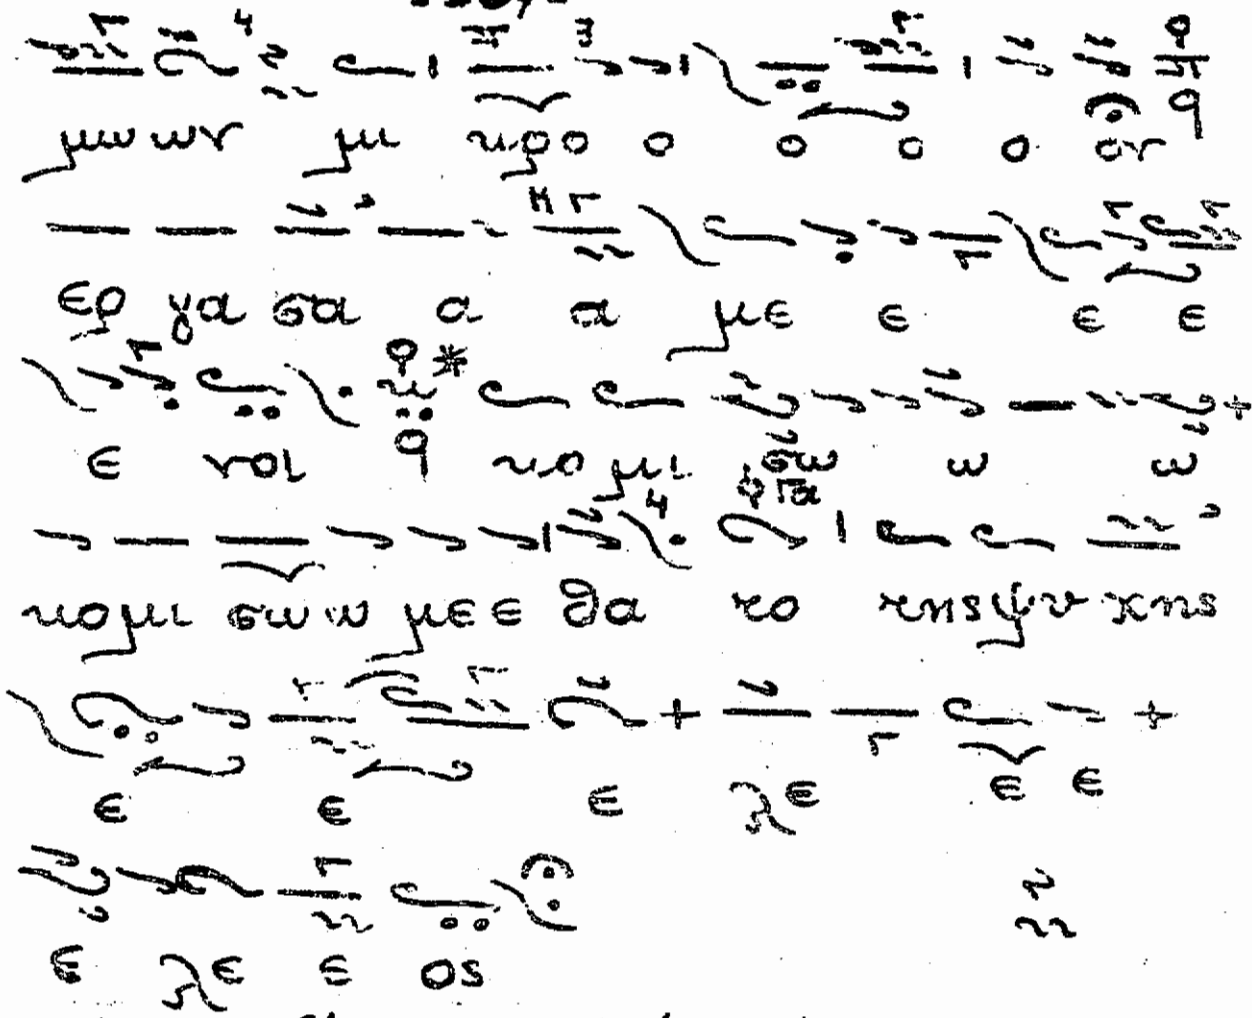 μω ων μι κρο ο ο ο ο ον
ερ γα σα α α με ε ε ε
ε νοι κο μι σω ω ω
κομι σωω μεε θα το της ψυ χης
ε ε ε λε ε ε
ε λε ε ος